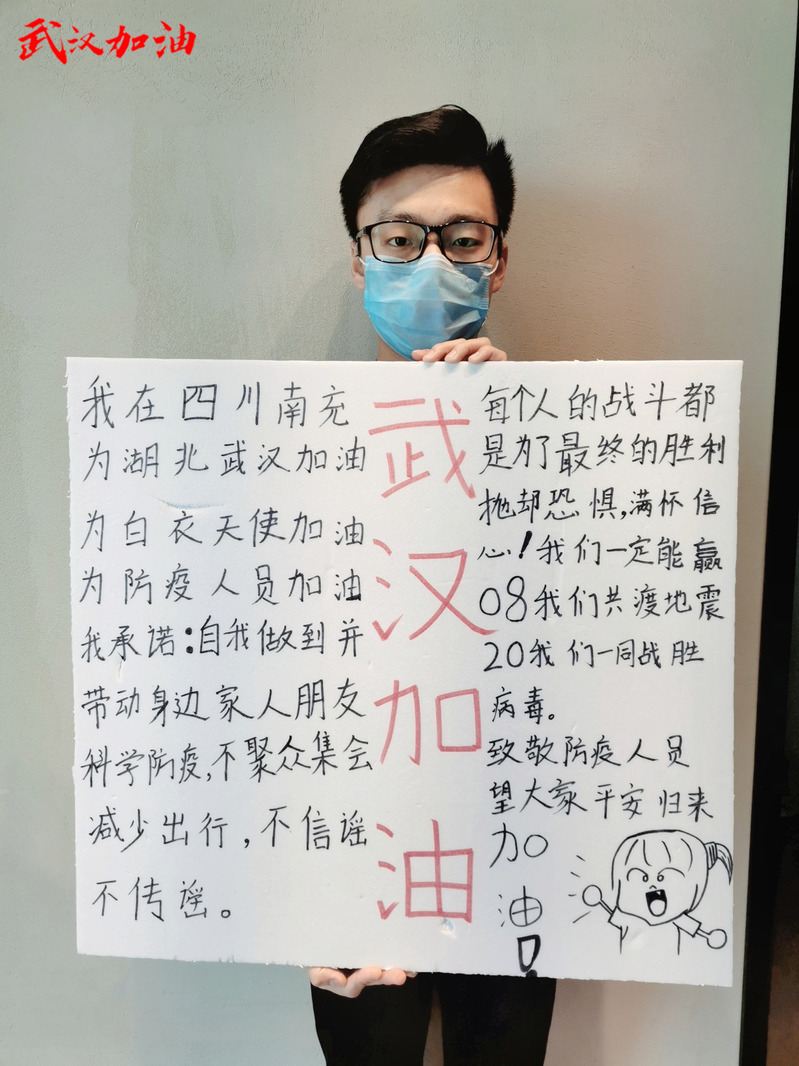 武汉加油
我在四川南充
为湖北武汉加油
为白衣天使加油
为防疫人员加油
我承诺:自我做到并
带动身边家人朋友
科学防疫,不聚众集会
减少出行,不信谣
不传谣。
武
汉
加
油
每个人的战斗都
是为了最终的胜利
抛却恐惧,满怀信
心!我们一定能赢
08我们共渡地震
20我们一同战胜
病毒。
致敬防疫人员
望大家平安归来
加
油
!